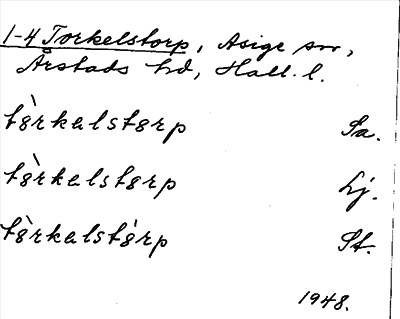 1-4 Torkelstorp, Asige sn,
Årstads hd, Hall. l.
tòrkalstorp Sa.
tòrkalstorp Lj.
tòrkalstórp St.
1948.